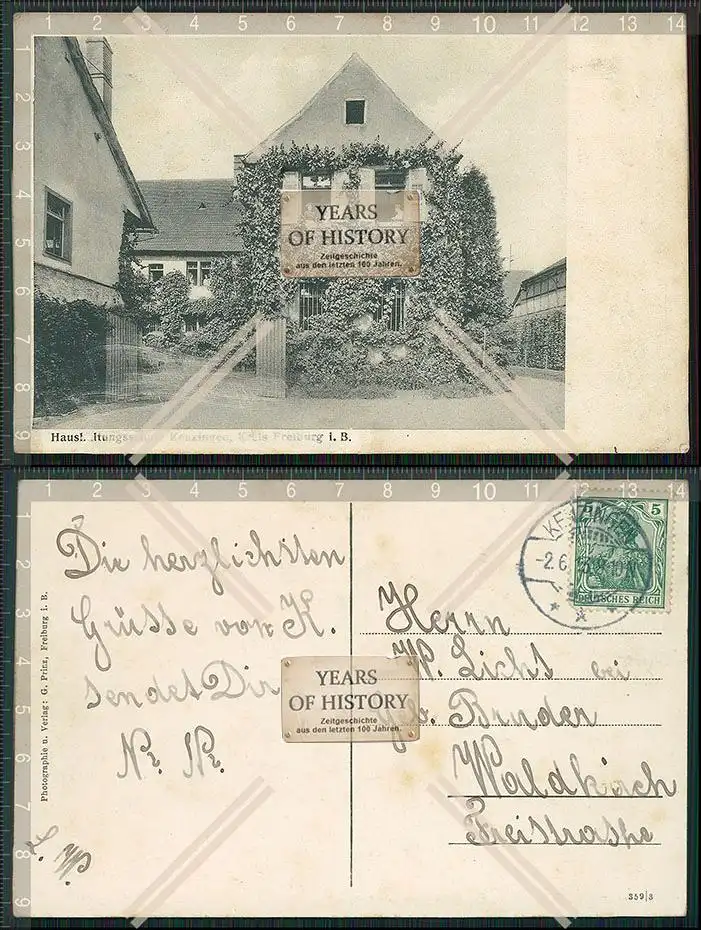 1 2 3 4 5 6 7 8 9 10 11 12 13 14
1
2
3
4
5
6
7
8
9
YEARS
OF HISTORY
Zeitgeschichte
aus den letzten 100 Jahren.
Kenzingen, Kreis Freiburg i. B.
1 2 3 4 5 6 7 8 9 10 11 12 13 14
1
2
3
4
5
6
7
8
9
Die herzlichsten
Grüsse von K.
sendet Dir
N. N.
L. W.
Photographie u. Verlag: G. Prinz, Freiburg i. B.
YEARS
OF HISTORY
Zeitgeschichte
aus den letzten 100 Jahren.
5
DEUTSCHES REICH
Herrn
W. Licht bei
Geb. Bruder
Waldkirch
Freistrasse
359|3